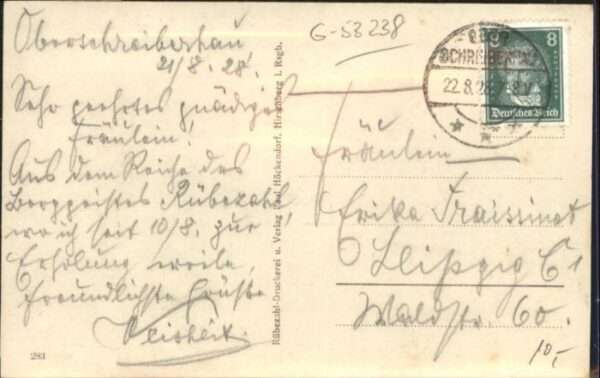 Oberschreiberhau
21/8. 28.
Sehr geehrtes gnädiges
Fräulein!
Aus dem Reiche des
Berggeistes Rübezahl,
wo ich seit 10/8. zur
Erholung weile,
freundlichste Grüße
G-53238
SCHREIBERHAU
22.8.28
8
Deutsches Reich
Fräulein
Erika Fraissinet
Leipzig C1
Waldstr. 60.
10,-
Rübezahl-Druckerei u. Verlag Paul Höckendorf, Hirschberg i. Rsgb.
283